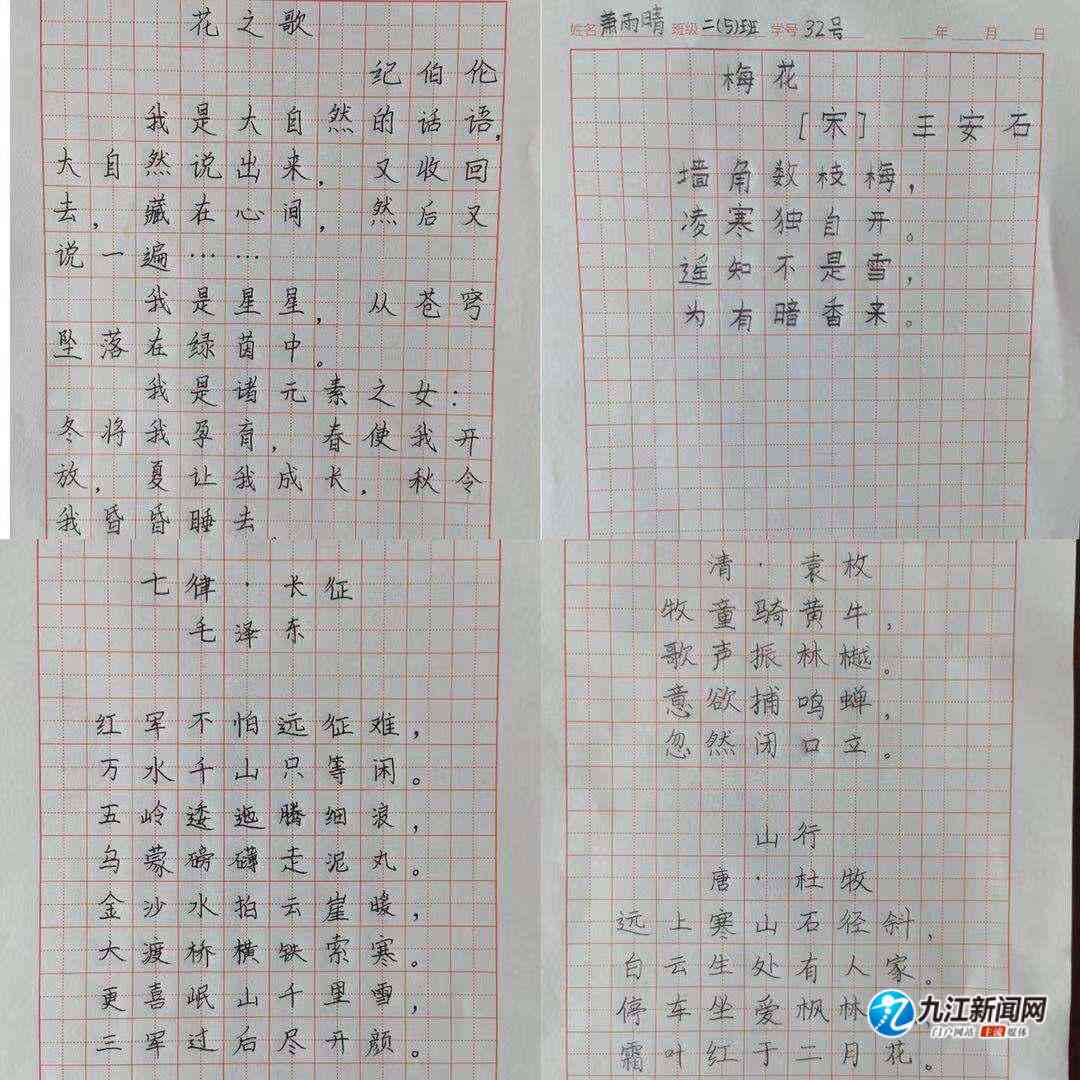 花之歌
纪伯伦
我是大自然的话语，
大自然说出来，又收回
去，藏在心间，然后又
说一遍……
我是星星，从苍穹
坠落在绿茵中。
我是诸元素之女：
冬将我孕育，春使我开
放，夏让我成长，秋令
我昏昏睡去
姓名 萧雨晴 班级 二(5)班 学号 32号 年 月 日
梅花
［宋］ 王安石
墙角数枝梅，
凌寒独自开。
遥知不是雪，
为有暗香来。
七律·长征
毛泽东
红军不怕远征难，
万水千山只等闲。
五岭逶迤腾细浪，
乌蒙磅礴走泥丸。
金沙水拍云崖暖，
大渡桥横铁索寒。
更喜岷山千里雪，
三军过后尽开颜。
清·袁枚
牧童骑黄牛，
歌声振林樾。
意欲捕鸣蝉，
忽然闭口立。
山行
唐·杜牧
远上寒山石径斜，
白云生处有人家。
停车坐爱枫林
霜叶红于二月花。
九江新闻网
门户网站 主流媒体